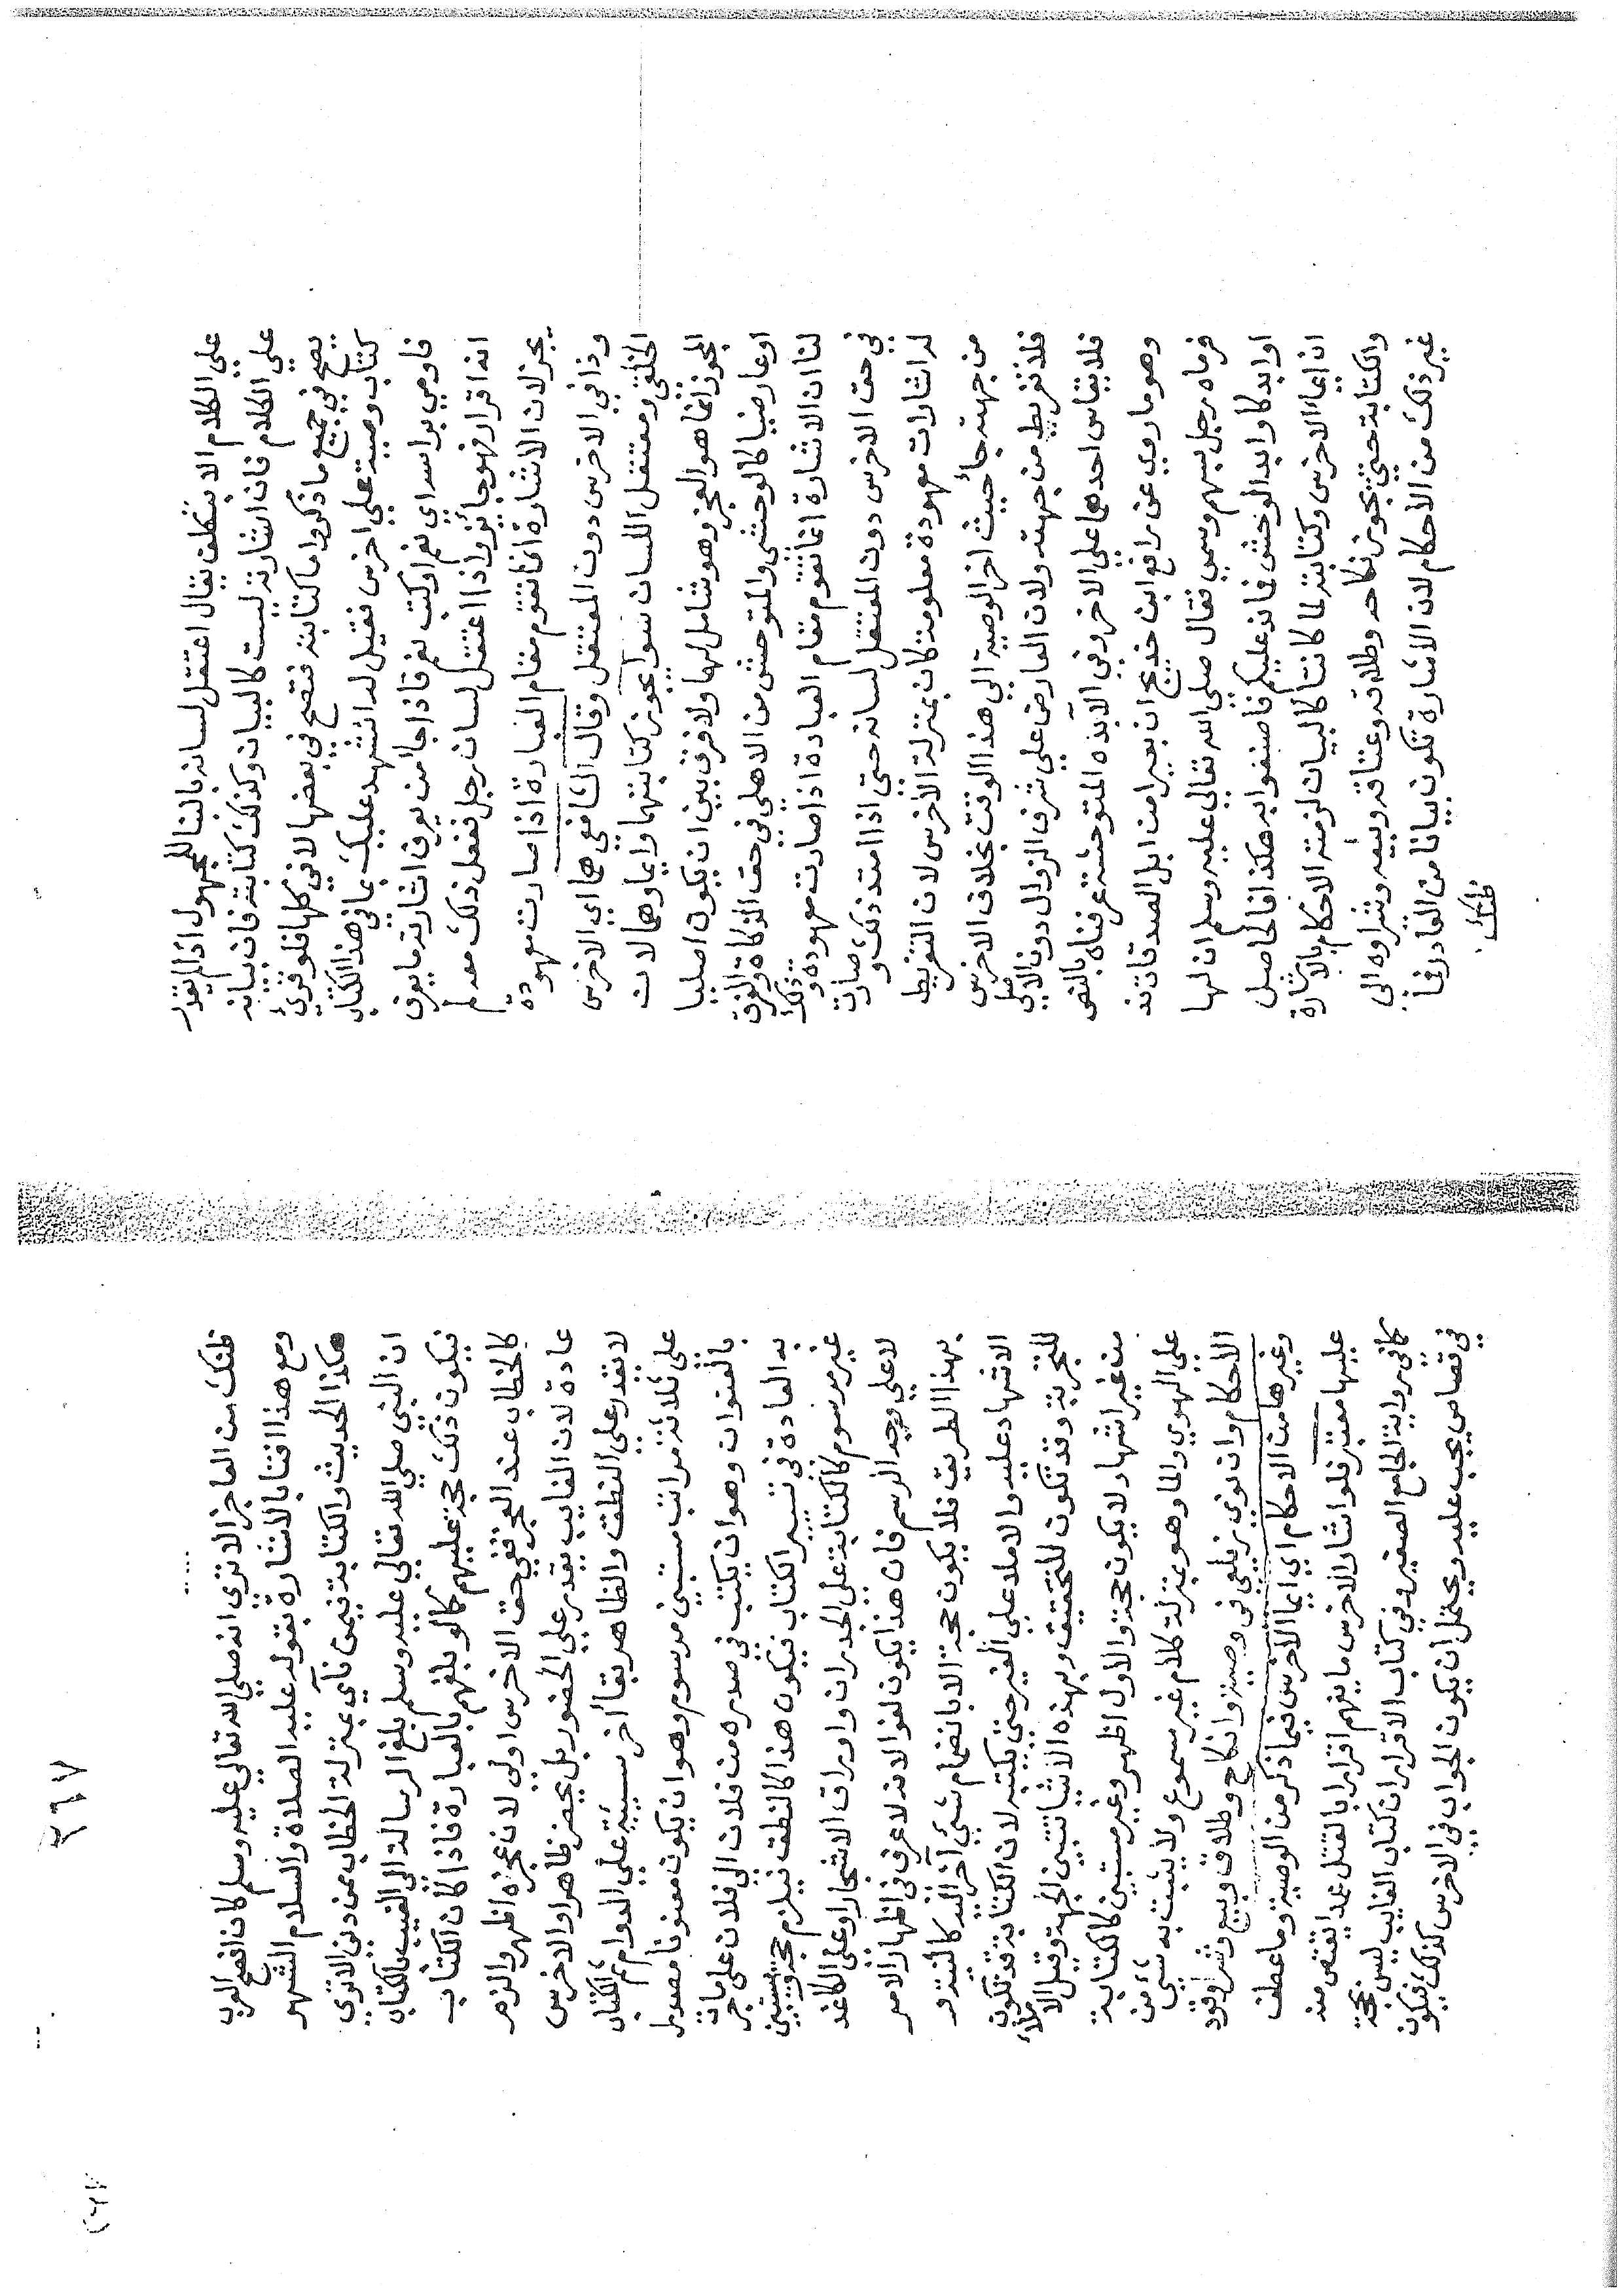 علي الكلام الا بتكلف يقال اعتقل لسانه بالبنا للمجهول اذا لم يقدر
علي الكلام فان اشارته ليست كالبيان وكذلك كتابته فان بيانه
يصح في جميع ما ذكروا ما كتابته فتصح في بعضها لا في كلها فلو قرئ
كتاب وصية علي اخرس فقيل له انشهد عليك بما في هذا الكتاب
فاومي براسه اي نعم او كتب نعم فاذا جا من يعرف اشارته ما يعرف
انه اقرار فهو جائز واذا اعتقل لسان رجل ففعل ذلك معه لم
يجز لان الاشارة انما تقوم مقام العبارة اذا صارت معهودة
وذا في الاخرس دون المعتقل وقال الشافعي هما اي الاخرس
الخلقي ومعتقل اللسان سوا يجوز كتابتهما وايماوهما لان
المجوز انما هو العجز وهو شامل لهما ولا فرق بين ان يكون اصليا
او عارضيا كالوحشي والمتوحش من الاهلي في حق الذكاة والفرق
لنا ان الاشارة انما تقوم مقام العبارة اذا صارت معهودة وذلك
في حق الاخرس دون المعتقل لسانه حتى اذا امتد ذلك وصارت
له اشارات معهودة معلومة كان بمنزلة الاخرس لان التفريط
من جهته جا حيث اخر الوصية الي هذا الوقت بخلاف الاخرس
فلا تفريط من جهته ولان العارض علي شرف الزوال دون الاصلي
فلا يقاس احدهما علي الاخر وفي الآبده المتوحشة عرفناه بالنص
وهو ما روي عن رافع ابن خديج ان بعيرا من ابل الصدقة ند
فرماه رجل بسهم وسمي فقال صلي الله تعالي عليه وسلم ان لها
اوابد كاوابد الوحش فما ند عليكم فاصنعوا به هكذا فالحاصل
ان ايماء الاخرس وكتابته لما كانتا كالبيان لزمته الاحكام بالاشارة
والكتابة حتي يجوز نكاحه وطلاقه وعتاقه وبيعه وشراوه الي
غير ذلك من الاحكام لان الاشارة تكون بيانا من القادر فما
ظنك
٢٦٧
ظنك من العاجز الا تري انه صلي الله تعالي عليه وسلم كان افصح العرب
ومع هذا افتا بالاشارة بقوله عليه الصلاة والسلام الشهر
هكذا الحديث والكتابة فيمن نآي بمنزلة الخطاب ممن دني الا تري
ان النبي صلي الله تعالي عليه وسلم بلغ الرسالة الي الغيب بالكتاب
فيكون ذلك حجة عليهم كما لو بلغهم بالعبارة فاذا كان الكتاب
كالخطاب عند العجز ففي حق الاخرس اولي لان عجزه اظهر والزم
عادة لان الغايب يقدر علي الحضور بل يحضر ظاهرا والاخرس
لا يقدر علي النطق والظاهر بقا اخرسيته علي الدوام ثم الكتاب
علي ثلاثة مراتب مستبين مرسوم وهو ان يكون معنونا مصدرا
بالعنوان وهو ان يكتب في صدره من فلان الي فلان علي ما جرت
به العادة في تسيير الكتاب فيكون هذا كالنطق فيلزم حجة ومستبين
غير مرسوم كالكتابة علي الجدران واوراق الاشجار او علي الكاغد
لا علي وجه الرسم فان هذا يكون لغوا لانه لا عرف في اظهار الامر
بهذا الطريق فلا يكون حجة الا بانضمام شي آخر اليه كالنية و
الاشهاد عليه والاملا علي الغير حتي يكتبه لان الكتابة قد تكون
للتجربة وقد تكون للتحقيق وبهذه الاشيا تتبين الجهة وقيل الاملاء
من غير اشهاد لا يكون حجة والاول اظهر وغير مستبين كالكتابة
علي الهوي والما وهو بمنزلة كلام غير مسموع ولا يثبت به شي من
الاحكام وان نوي زيلعي في وصية ونكاح وطلاق وبيع وشرا وقود
وغيرها من الاحكام اي ايما الاخرس فيما ذكر من الوصية وما عطف
عليها معتبر فلو اشار الاخرس ما يفهم اقرارا بالقتل عمدا يقتص منه
كما في رواية الجامع الصغير وفي كتاب الاقرار ان كتاب الغايب ليس بحجة
في قصاص يجب عليه ويحتمل ان يكون الجواب في الاخرس كذلك فيكون